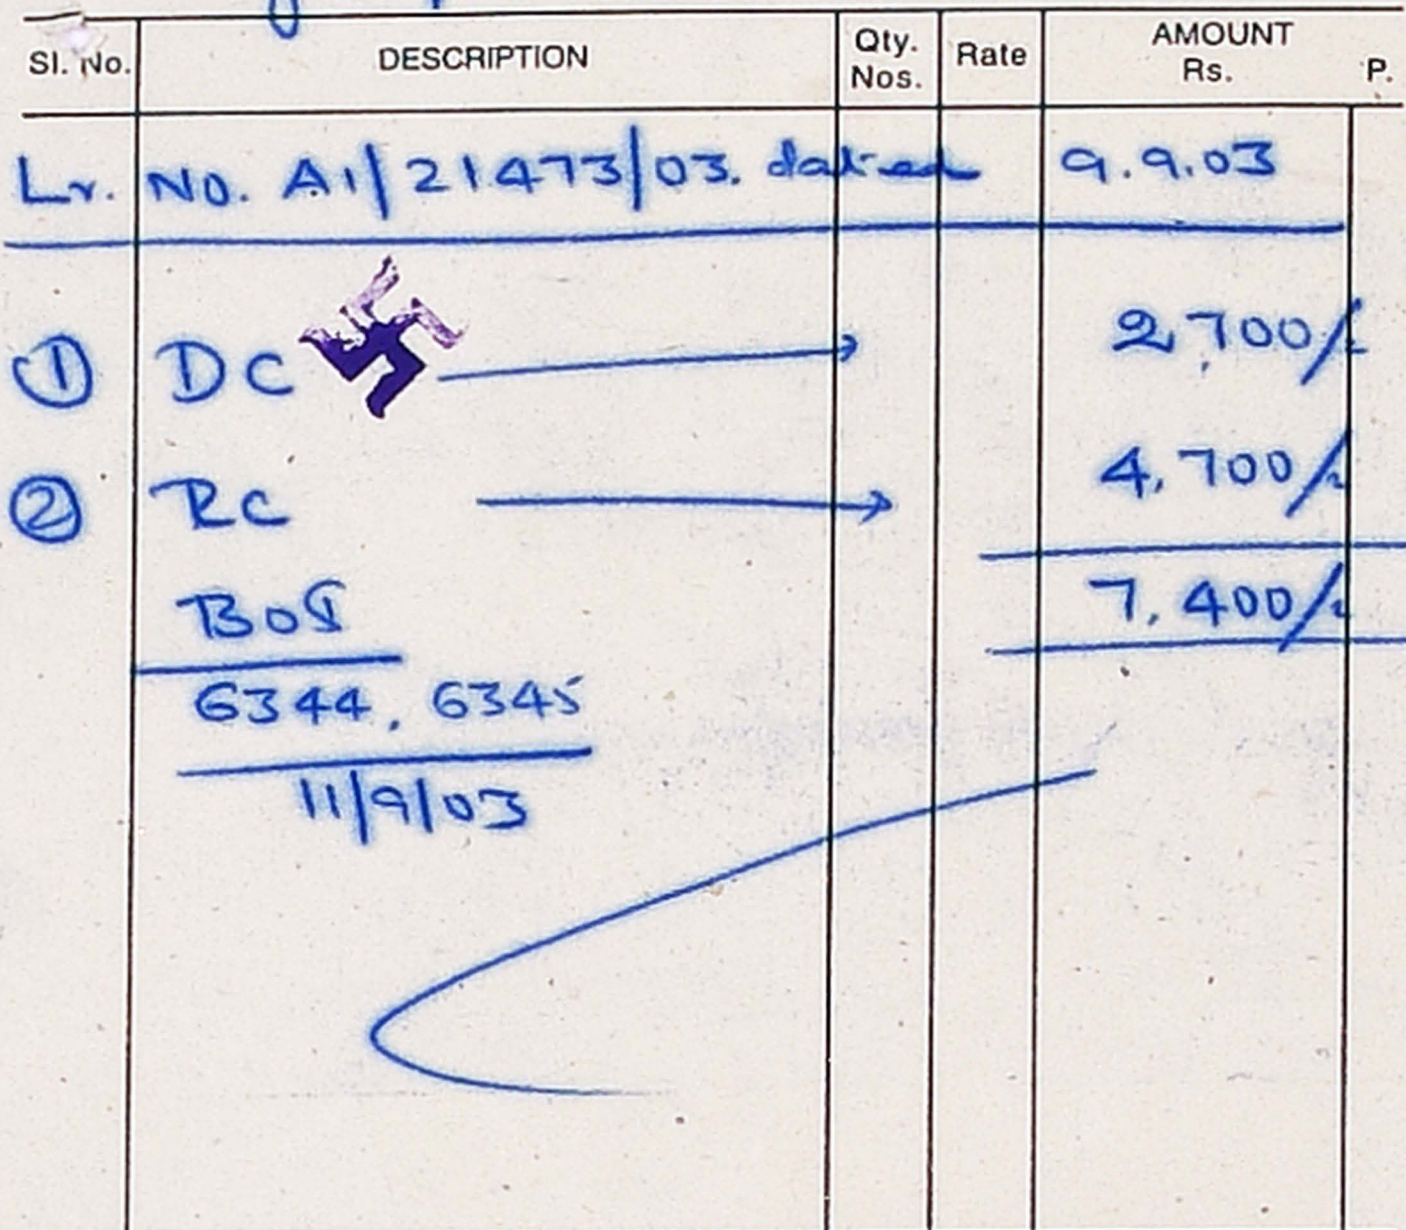 Sl. No. DESCRIPTION Qty. Nos. Rate AMOUNT Rs. P.
Lr. No. A1/21473/03. dated 9.9.03
① DC → 2,700/-
② RC → 4,700/-
7,400/-
BOS
6344, 6345
11/9/03